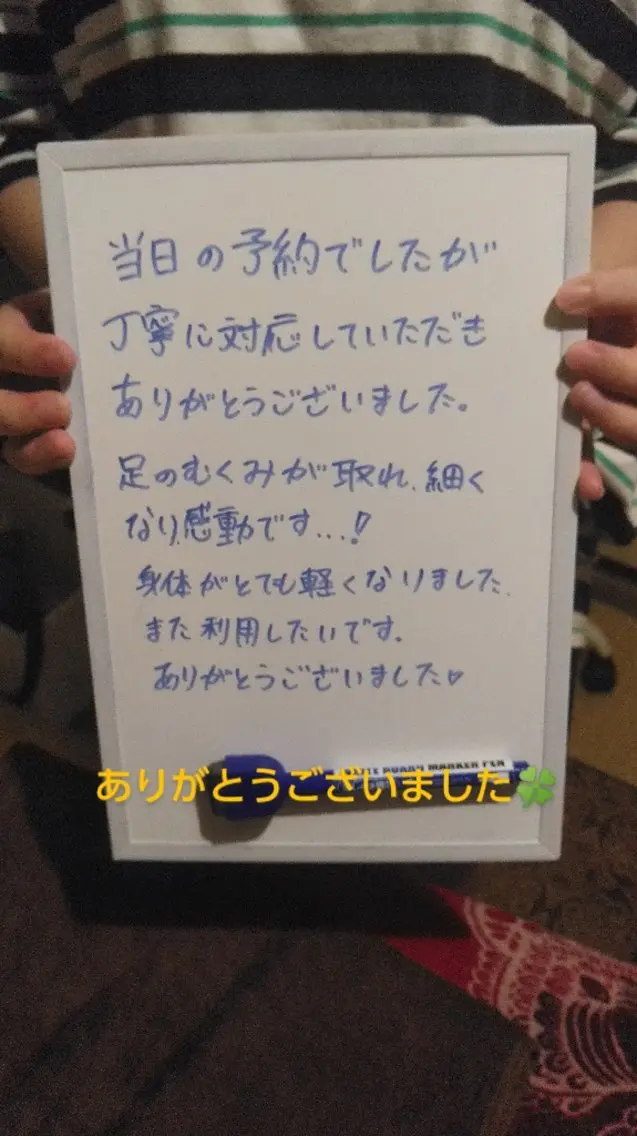 当日の予約でしたが
丁寧に対応していただき
ありがとうございました。
足のむくみが取れ、細く
なり感動です...!
身体がとても軽くなりました。
また利用したいです。
ありがとうございました♡
MARKER PEN
ありがとうございました🍀